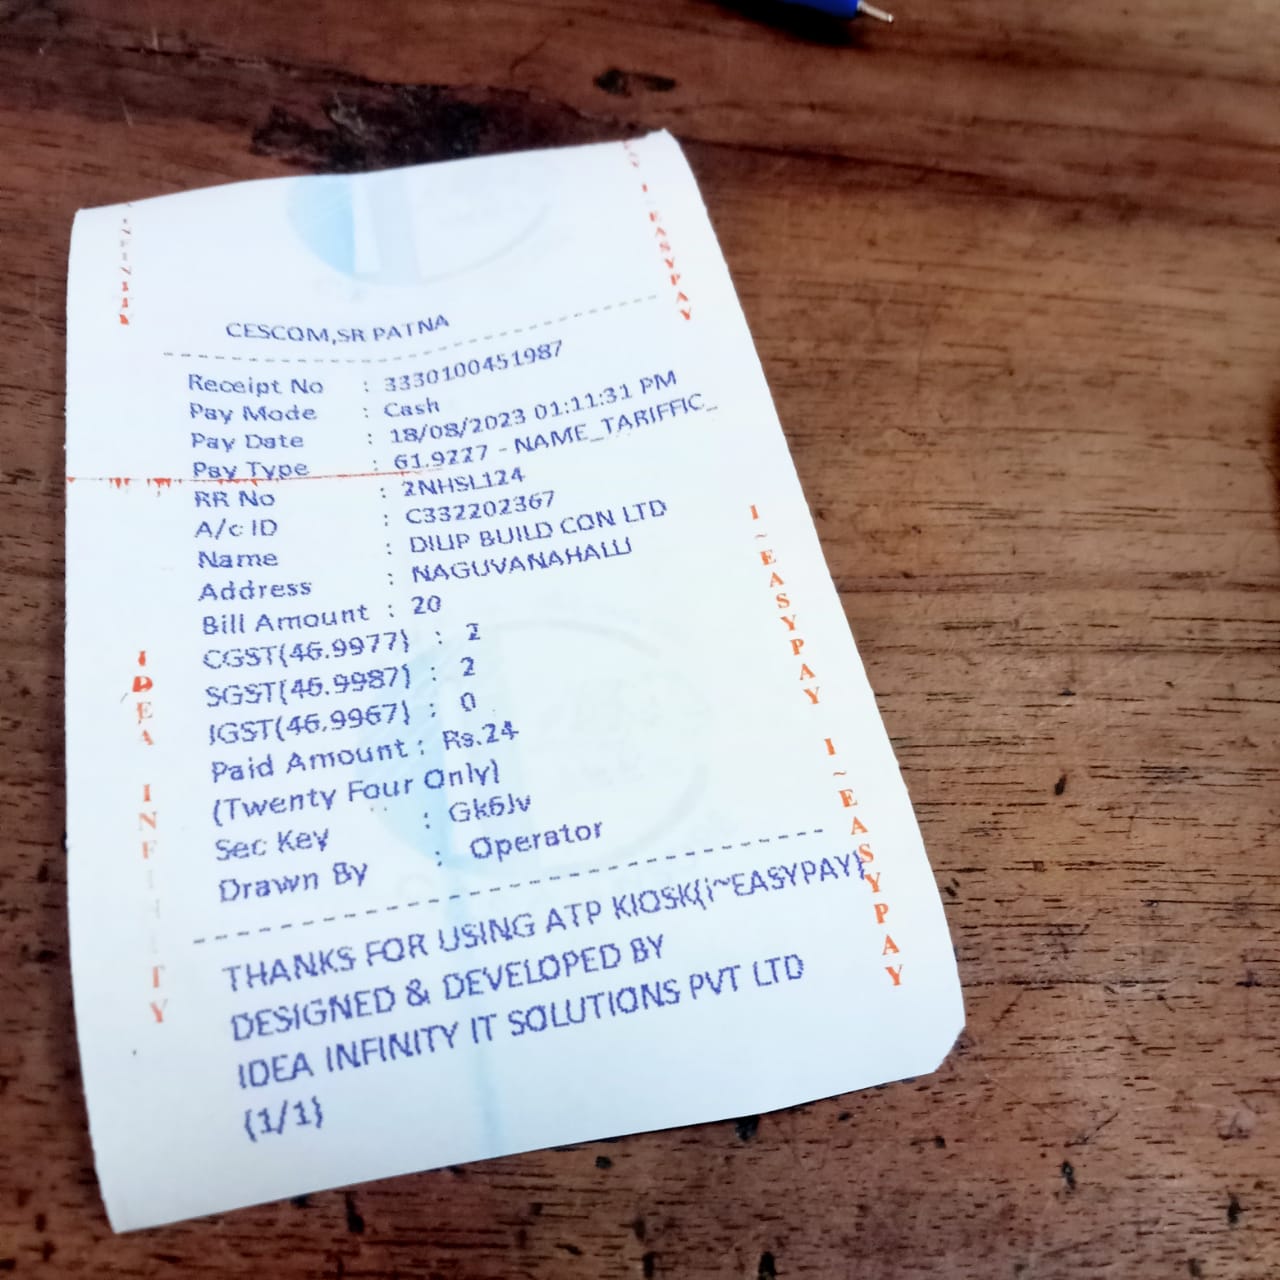 CESCOM,SR PATNA
Receipt No : 3330100451987
Pay Mode : Cash
Pay Date : 18/08/2023 01:11:31 PM
Pay Type : 61.9227 - NAME_TARIFFIC_
RR No : 2NHSL124
A/c ID : C332202367
Name : DILIP BUILD CON LTD
Address : NAGUVANAHALLI
Bill Amount : 20
CGST(46.9977) : 2
SGST(46.9987) : 2
IGST(46.9967) : 0
Paid Amount : Rs.24
(Twenty Four Only)
Sec Key : Gk6Jv
Drawn By : Operator
THANKS FOR USING ATP KIOSK(i~EASYPAY)
DESIGNED & DEVELOPED BY
IDEA INFINITY IT SOLUTIONS PVT LTD
(1/1)
IDEA INFINITY
I~EASYPAY
I~EASYPAY
I~EASYPAY